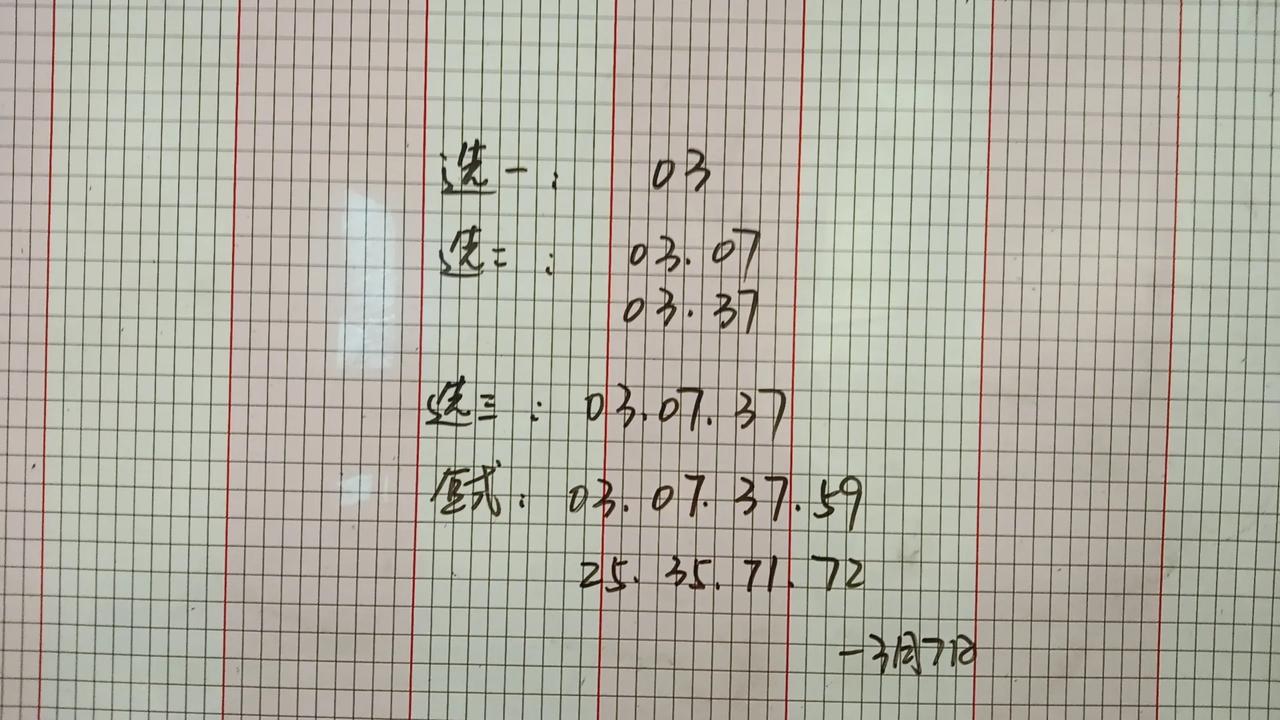 选一: 03
选二: 03.07
03.37
选三: 03.07.37
复式: 03.07.37.59
25.35.71.72
-3月7日